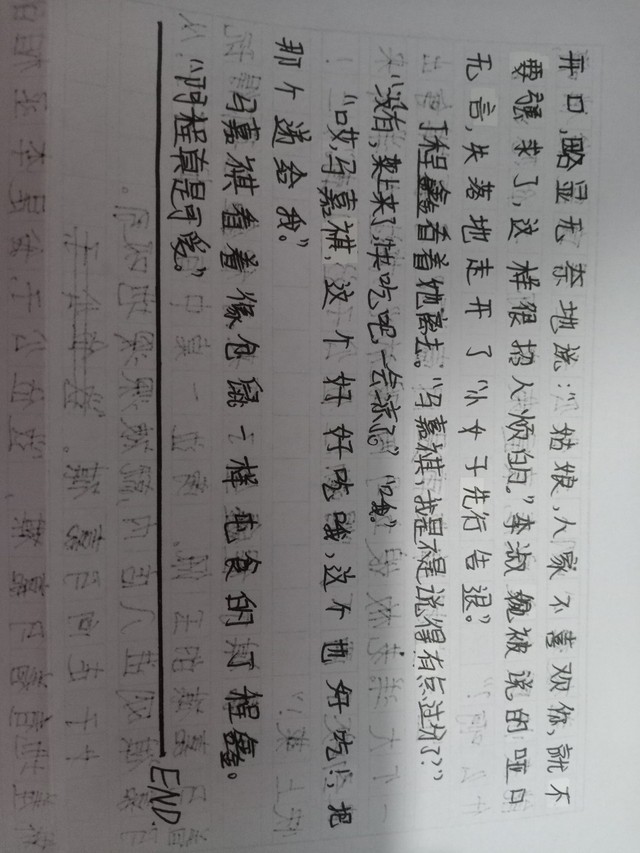 开口，略显无奈地说：“姑娘，人家不喜欢你，就不
要强求了，这样很招人烦的。”李淑勉被说的哑口
无言，失落地走开了“小女子先行告退。”
丁程鑫看着她离去。“马嘉祺，我是不是说得有点过分了？”
“没有，菜上来了，快吃吧，一会凉了。”“哦。”
“哎，马嘉祺，这个好好吃哦，这个也好吃，把
那个递给我。”
马嘉祺看着像仓鼠一样吃食的丁程鑫。
“阿程真是可爱。”
END.